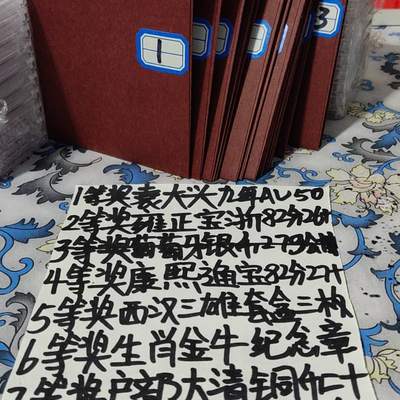 1
3
1等奖袁大头九年AU50
2等奖雍正宝浙82分26
3等奖葡萄牙银币
4等奖康熙通宝82分27
5等奖西汉三雄套盒三枚
6等奖生肖金牛纪念章
7等奖户部大清铜币二十